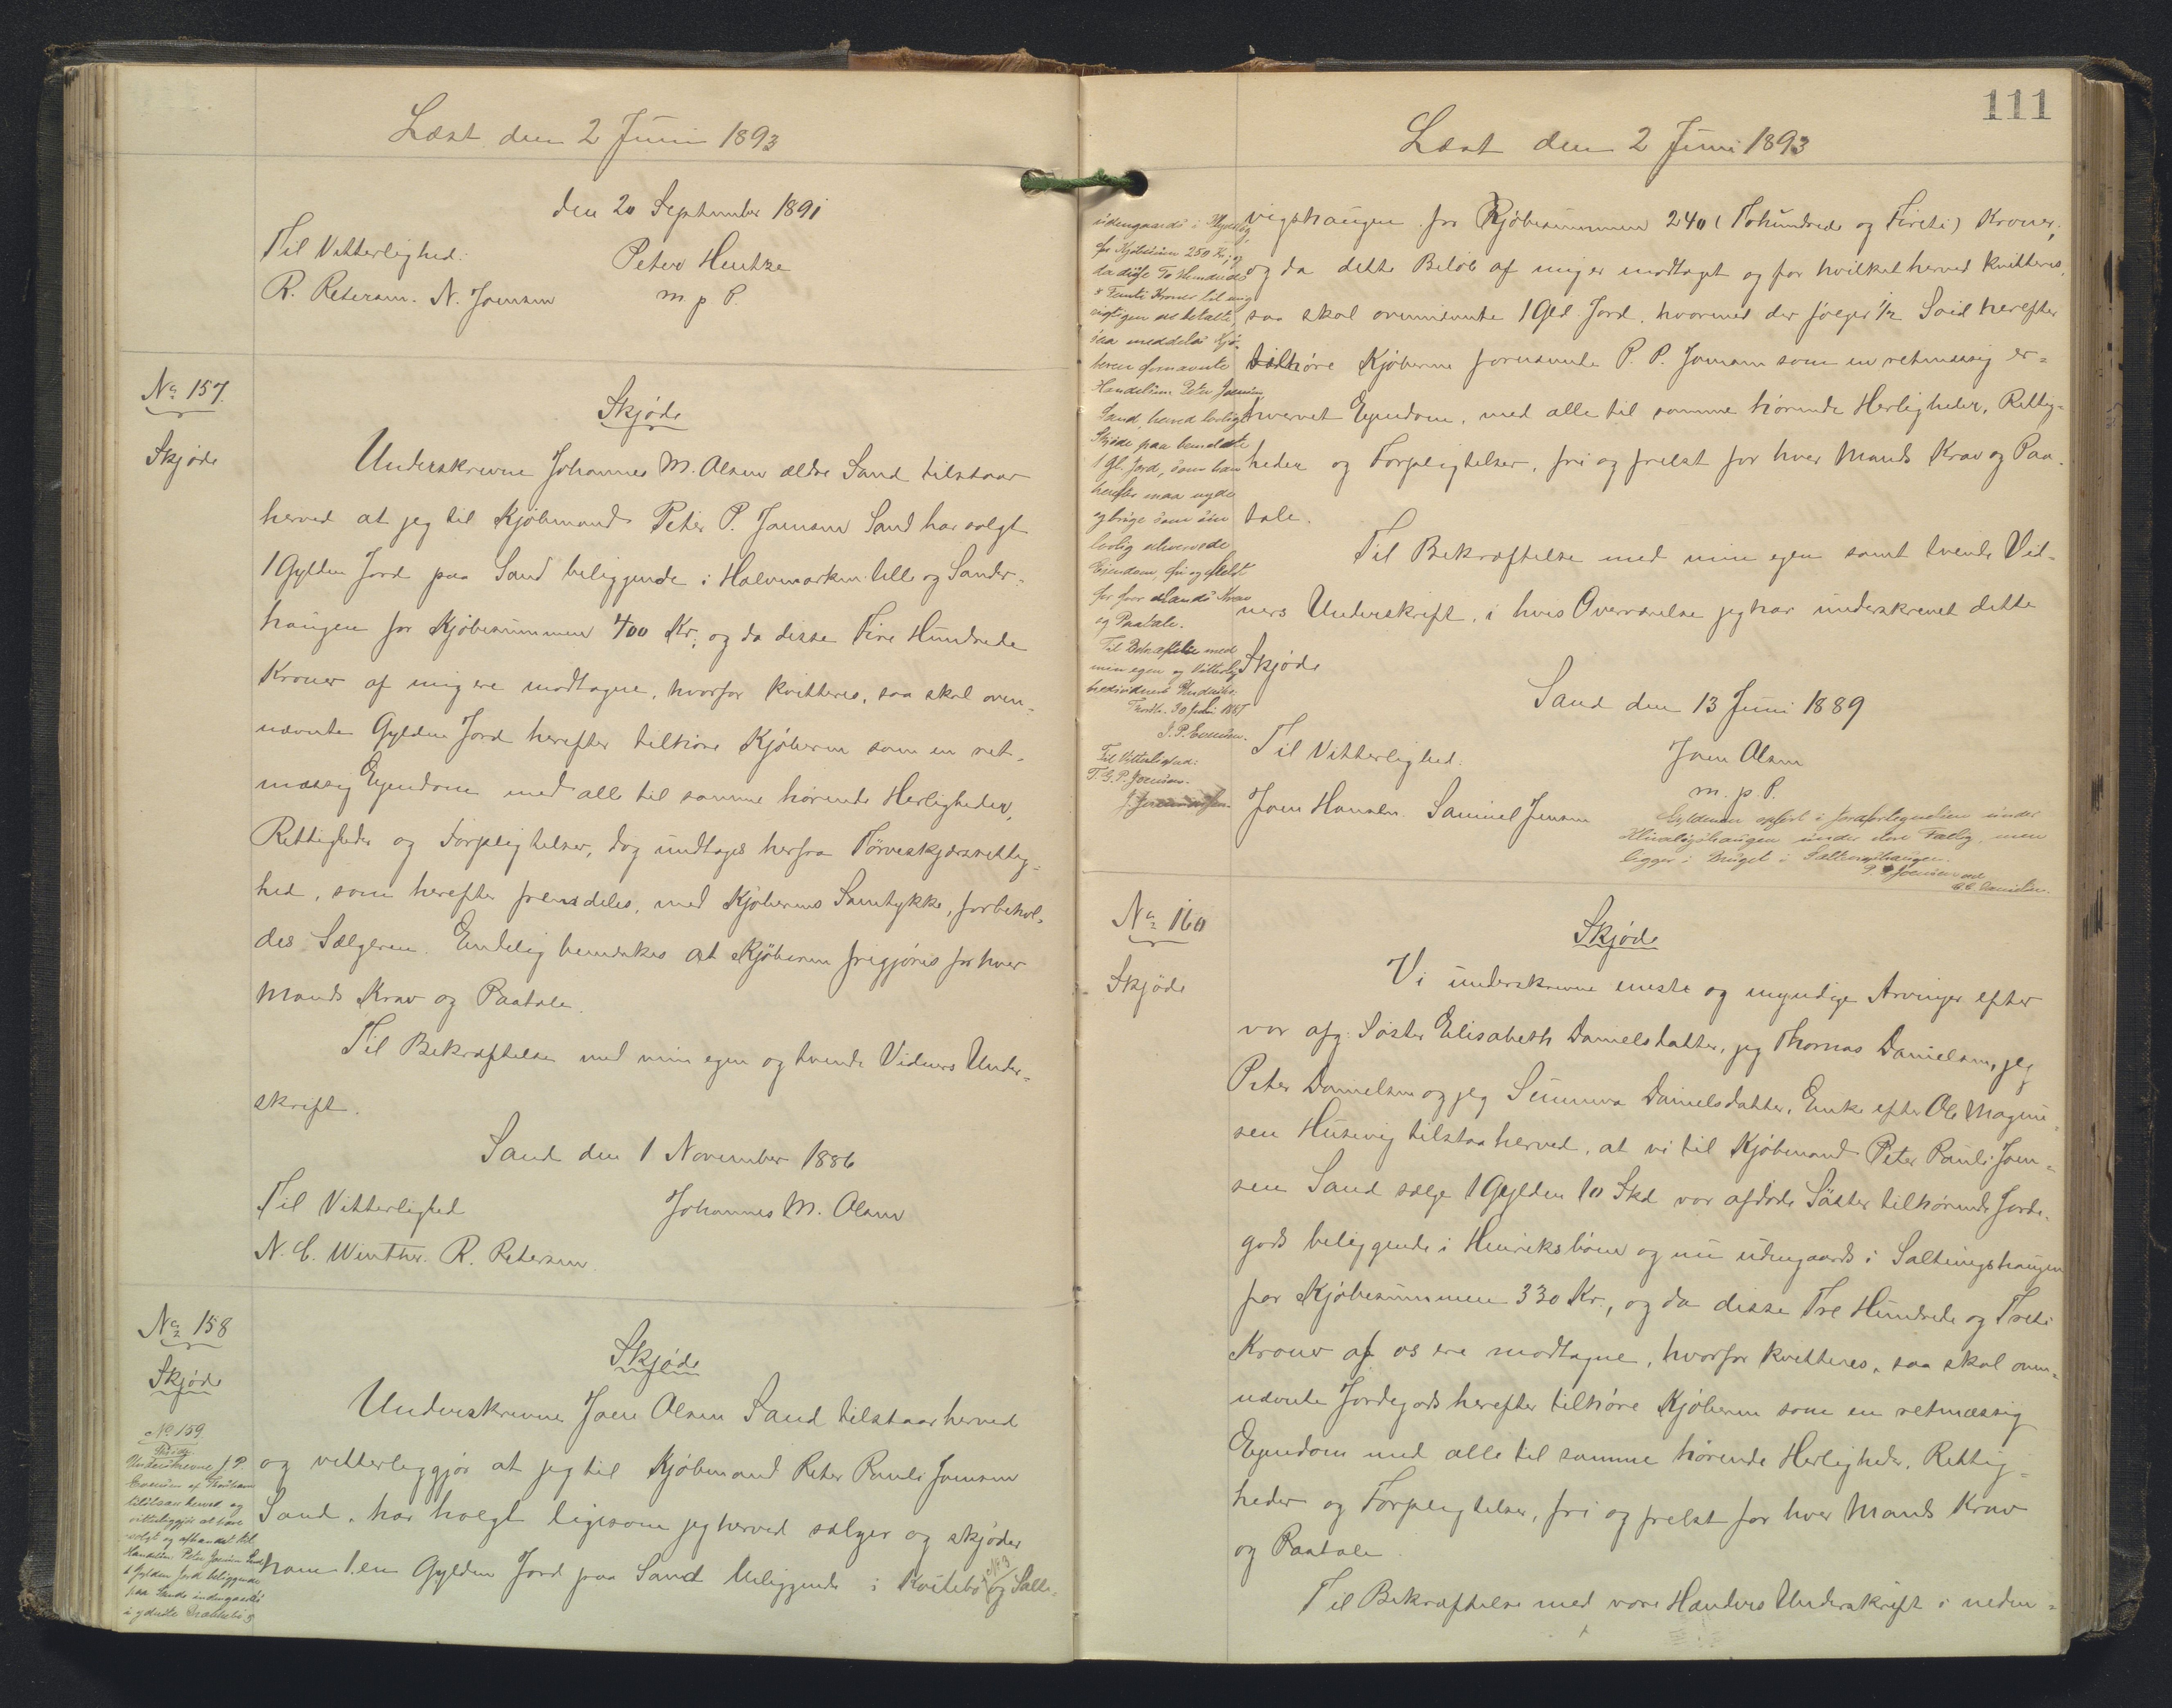 Læst den 2 Juni 1893
den 20 September 1891
Til Vitterlighed:
Peter Hentze
R. Petersen. N. Joensen
m. p. P.
No 157.
Skjøde
Skjøde
Underskrevne Johannes M. Olsen ældre Sand tilstaar
herved at jeg til Kjøbmand Peter P. Joensen Sand har solgt
1 Gylden Jord paa Sand beliggende i Halvmarken lille og Sands-
haugen for Kjøbesummen 400 Kr; og da disse Fire Hundrede
Kroner af mig ere modtagne, hvorfor kvitteres, saa skal oven-
nævnte Gylden Jord herefter tilhøre Kjøberen som en ret-
mæssig Ejendom med alle til samme hørende Herligheder,
Rettigheder og Forpligtelser, dog undtages herfra Tørveskjærsrettig-
hed, som herefter fremdeles, med Kjøberens Samtykke, forbehol-
des Sælgeren. Endelig bemærkes at Kjøberen frigjøres for hver
Mands Krav og Paatale.
Til Bekræftelse med min egen og tvende Vidners Under-
skrift.
Sand den 1 November 1886
Til Vitterlighed
Johannes M. Olsen
N. C. Winther. R. Petersen
No 158
Skjøde
Skjøde
Underskrevne Joen Olsen Sand tilstaar herved
og vitterliggjør at jeg til Kjøbmand Peter Pauli Joensen
Sand, har solgt ligesom jeg herved sælger og skjøder
ham 1. en Gylden Jord paa Sand beliggende i Kvitebø og Salt-
No 159
Skjøde
Underskrevne J. P.
af Thorshavn
tilstaar herved og
vitterliggjør at have
solgt og afhændet til
Handelsm. Peter Joensen Sand
1 Gylden Jord beliggende
paa Sands indengaards
111
Læst den 2 Juni 1893
udengaards i
for Kjøbesum 250 Kr; og
da disse To Hundrede
& Femti Kroner til mig
rigtigen ere betalte,
saa meddeles Kjø-
beren fornævnte
Handelsm. Peter Joensen
Sand, herved lovligt
Skjøde paa bemeldte
1 Gl. Jord, som han
herefter maa nyde
og bruge som sin
lovlig erhvervede
Ejendom, fri og frelst
for hver Mands Krav
og Paatale.
Til Bekræftelse med
min egen og Vitterlig-
hedsvidners Underskr.
Thorsh. 30 Juni 1887
Til Vitterlighed:
T. G. P. Joensen.
vigshaugen for Kjøbesummen 240 (Tohundrede og Firti) Kroner,
og da dette Beløb af mig er modtaget og for hvilket herved kvitteres,
saa skal ovennævnte 1 Gld. Jord, hvormed der følger 1/2 Soid herefter
tilhøre Kjøberen fornævnte P. P. Joensen som en retmæssig er-
hvervet Ejendom, med alle til samme hørende Herligheder, Rettig-
heder og Forpligtelser, fri og frelst for hver Mands Krav og Paa-
tale.
Til Bekræftelse med min egen samt tvende Vid-
ners Underskrift, i hvis Overværelse jeg har underskrevet dette
Skjøde
Sand den 13 Juni 1889
Til Vitterlighed:
Joen Olsen
m. p. P.
Joen Hansen. Samuel Jensen
Gylden opført i Jordfortegnelsen under
under men
ligger i Bruget i Saltvigshaugen.
P. P. Joensen ved
No 160
Skjøde
Skjøde
Vi underskrevne eneste og myndige Arvinger efter
vor afg. Søster Elisabeth Danielsdatter, jeg Thomas Danielsen, jeg
Peter Danielsen og jeg Sunneva Danielsdatter, Enke efter Ole Magnu-
sen Husevig tilstaa herved, at vi til Kjøbmand Peter Pauli Joen-
sen Sand sælge 1 Gylden 10 Skd vor afdøde Søster tilhørende Jorde-
gods beliggende i Henriksbøen og nu udengaards i Saltvigshaugen
for Kjøbesummen 330 Kr., og da disse Tre Hundrede og Treti
Kroner af os ere modtagne, hvorfor kvitteres, saa skal oven-
nævnte Jordegods herefter tilhøre Kjøberen som en retmæssig
Ejendom med alle til samme hørende Herligheder, Rettig-
heder og Forpligtelser, fri og frelst for hver Mands Krav
og Paatale.
Til Bekræftelse med vore Hænders Underskrift i neden-